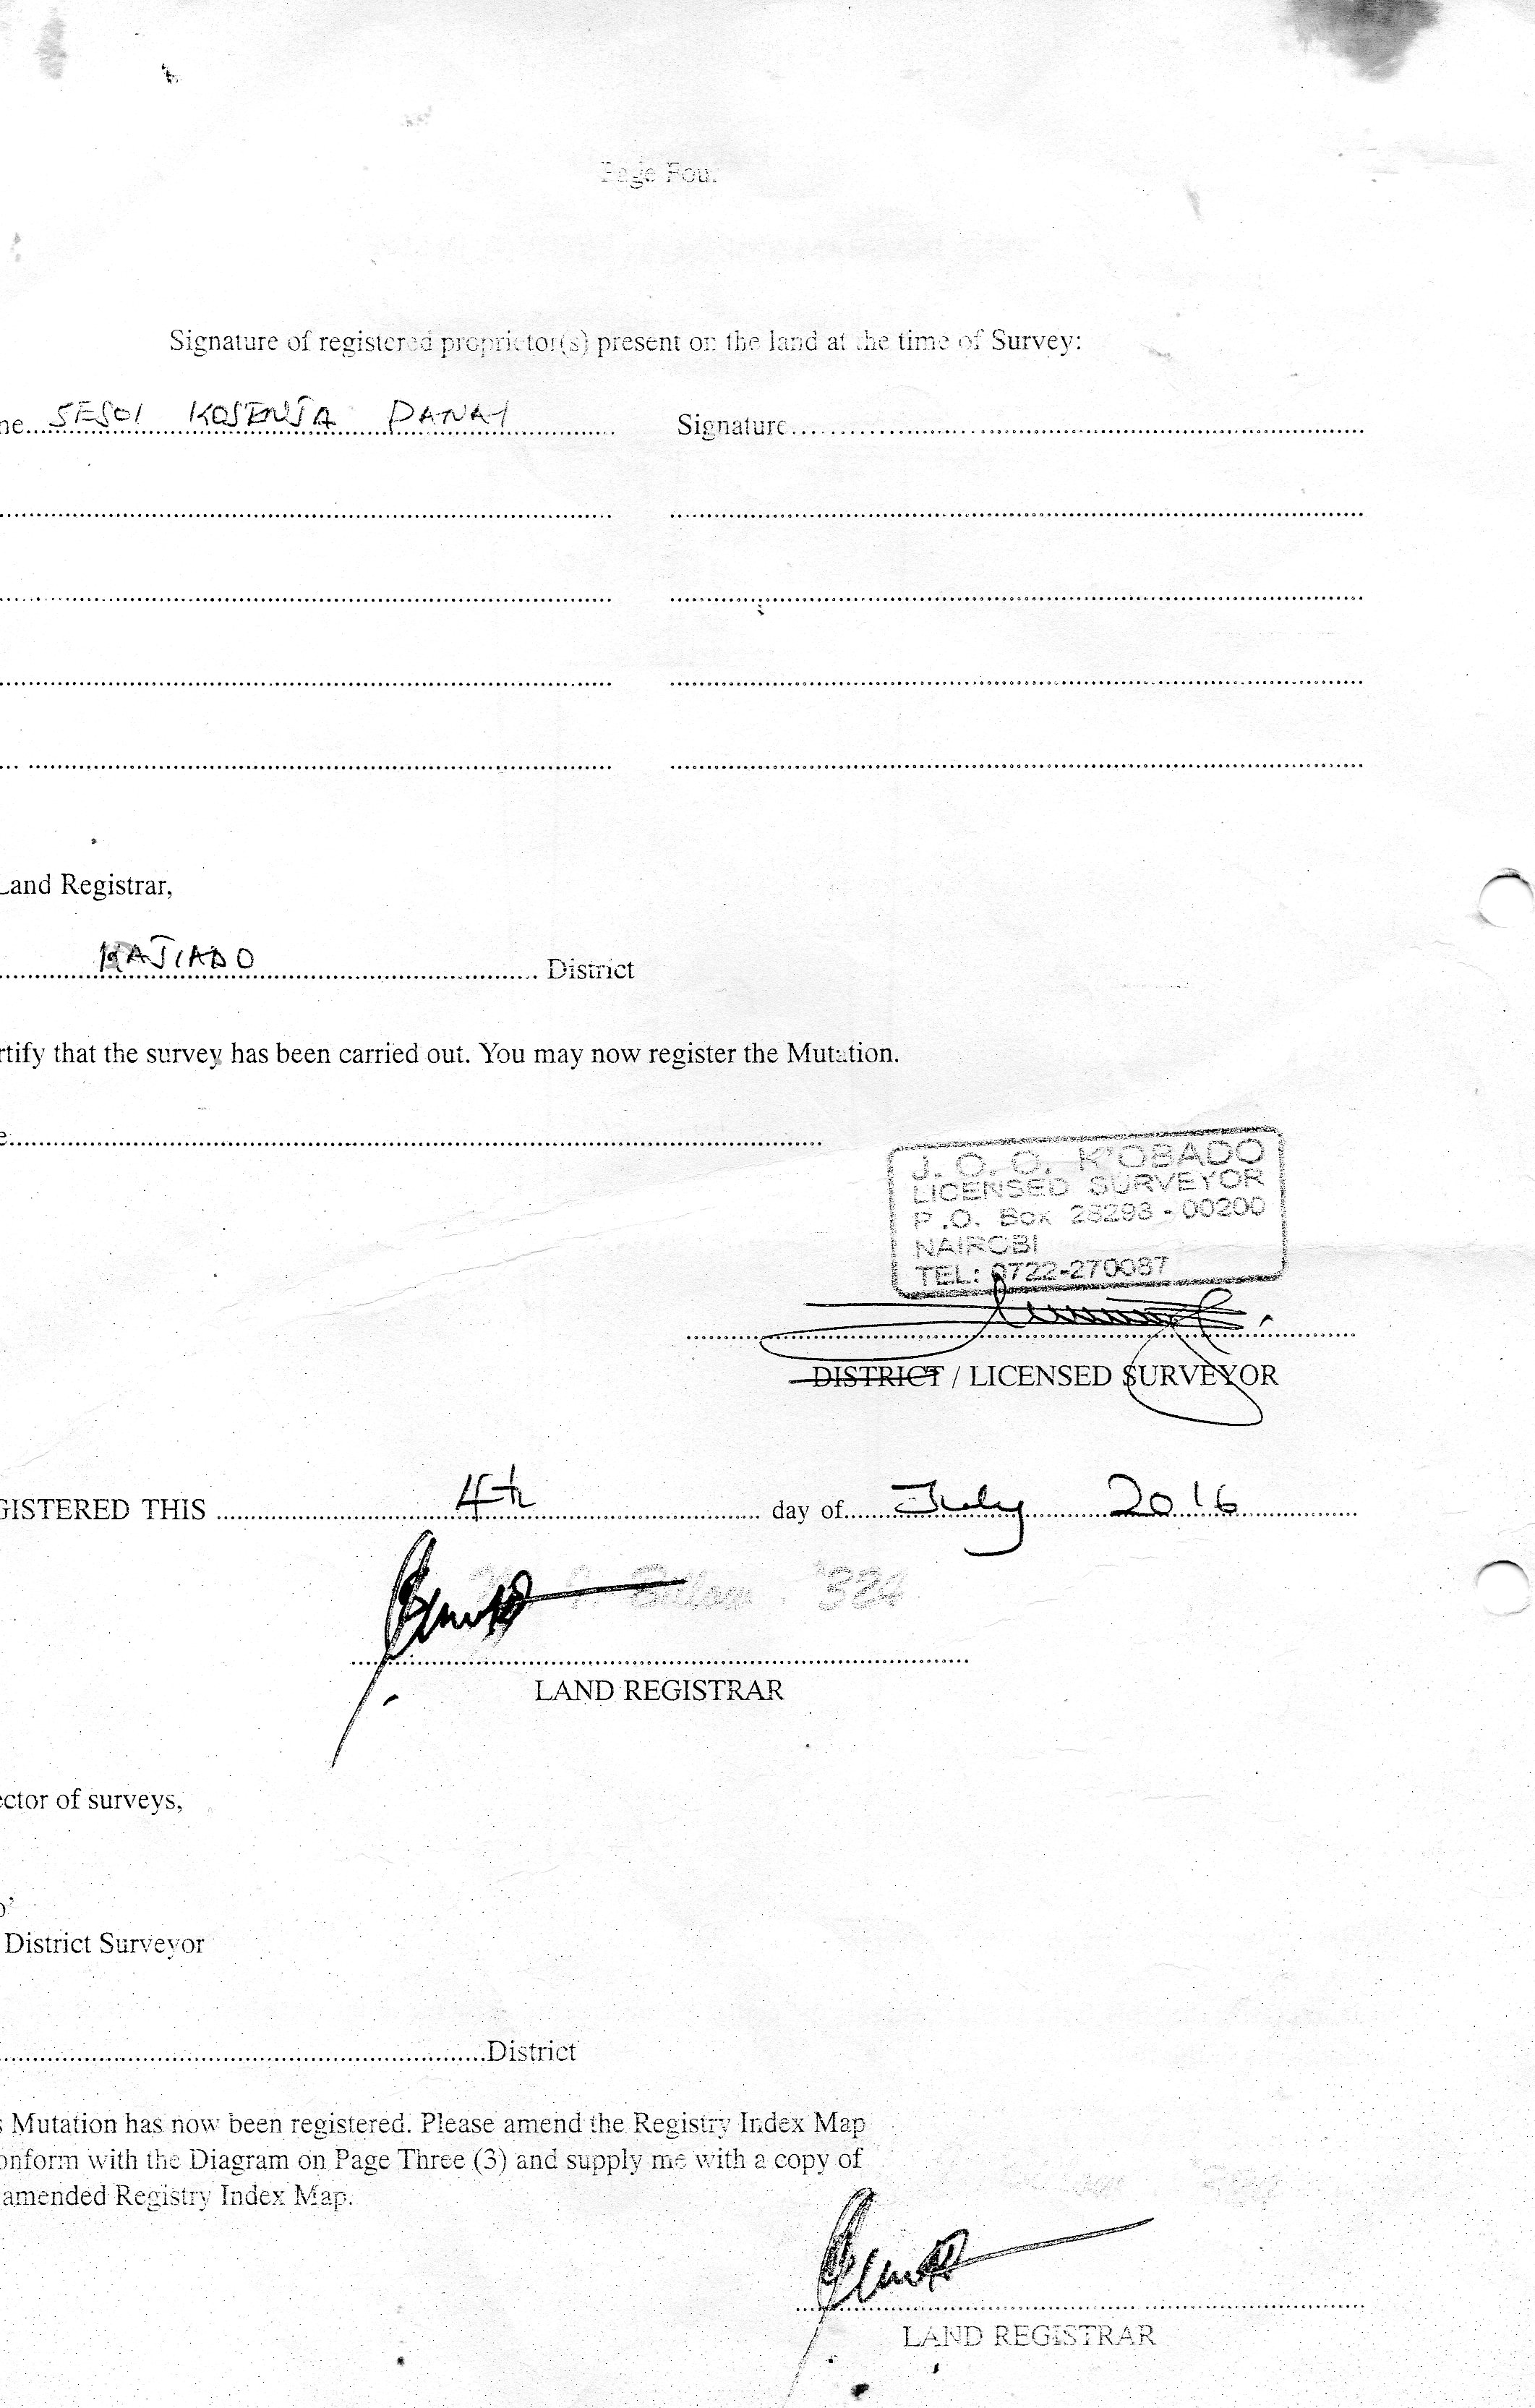 Page Four
Signature of registered proprietor(s) present on the land at the time of Survey:
ne....SESOI KOSENJA PANAI.... Signature....
Land Registrar,
....KAJIADO.... District
rtify that the survey has been carried out. You may now register the Mutation.
e....
J. O. O. K'OBADO
LICENSED SURVEYOR
P.O. Box 28293 - 00200
NAIROBI
TEL: 0722-270087
DISTRICT / LICENSED SURVEYOR
GISTERED THIS ....4th.... day of....July 2016....
'324
LAND REGISTRAR
ector of surveys,
District Surveyor
....District
s Mutation has now been registered. Please amend the Registry Index Map
onform with the Diagram on Page Three (3) and supply me with a copy of
amended Registry Index Map.
LAND REGISTRAR